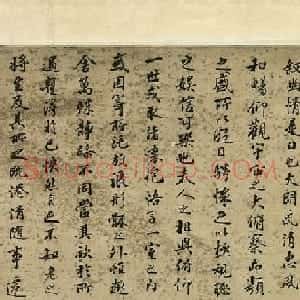 叙幽情是日也天朗氣清惠風
和暢仰觀宇宙之大俯察品類
之盛所以遊目騁懷足以極視聽
之娛信可樂也夫人之相與俯仰
一世或取諸懷抱悟言一室之內
或因寄所託放浪形骸之外雖趣
舍萬殊靜躁不同當其欣於所
遇暫得於己怏然自足不知老之
將至及其所之既倦情隨事遷